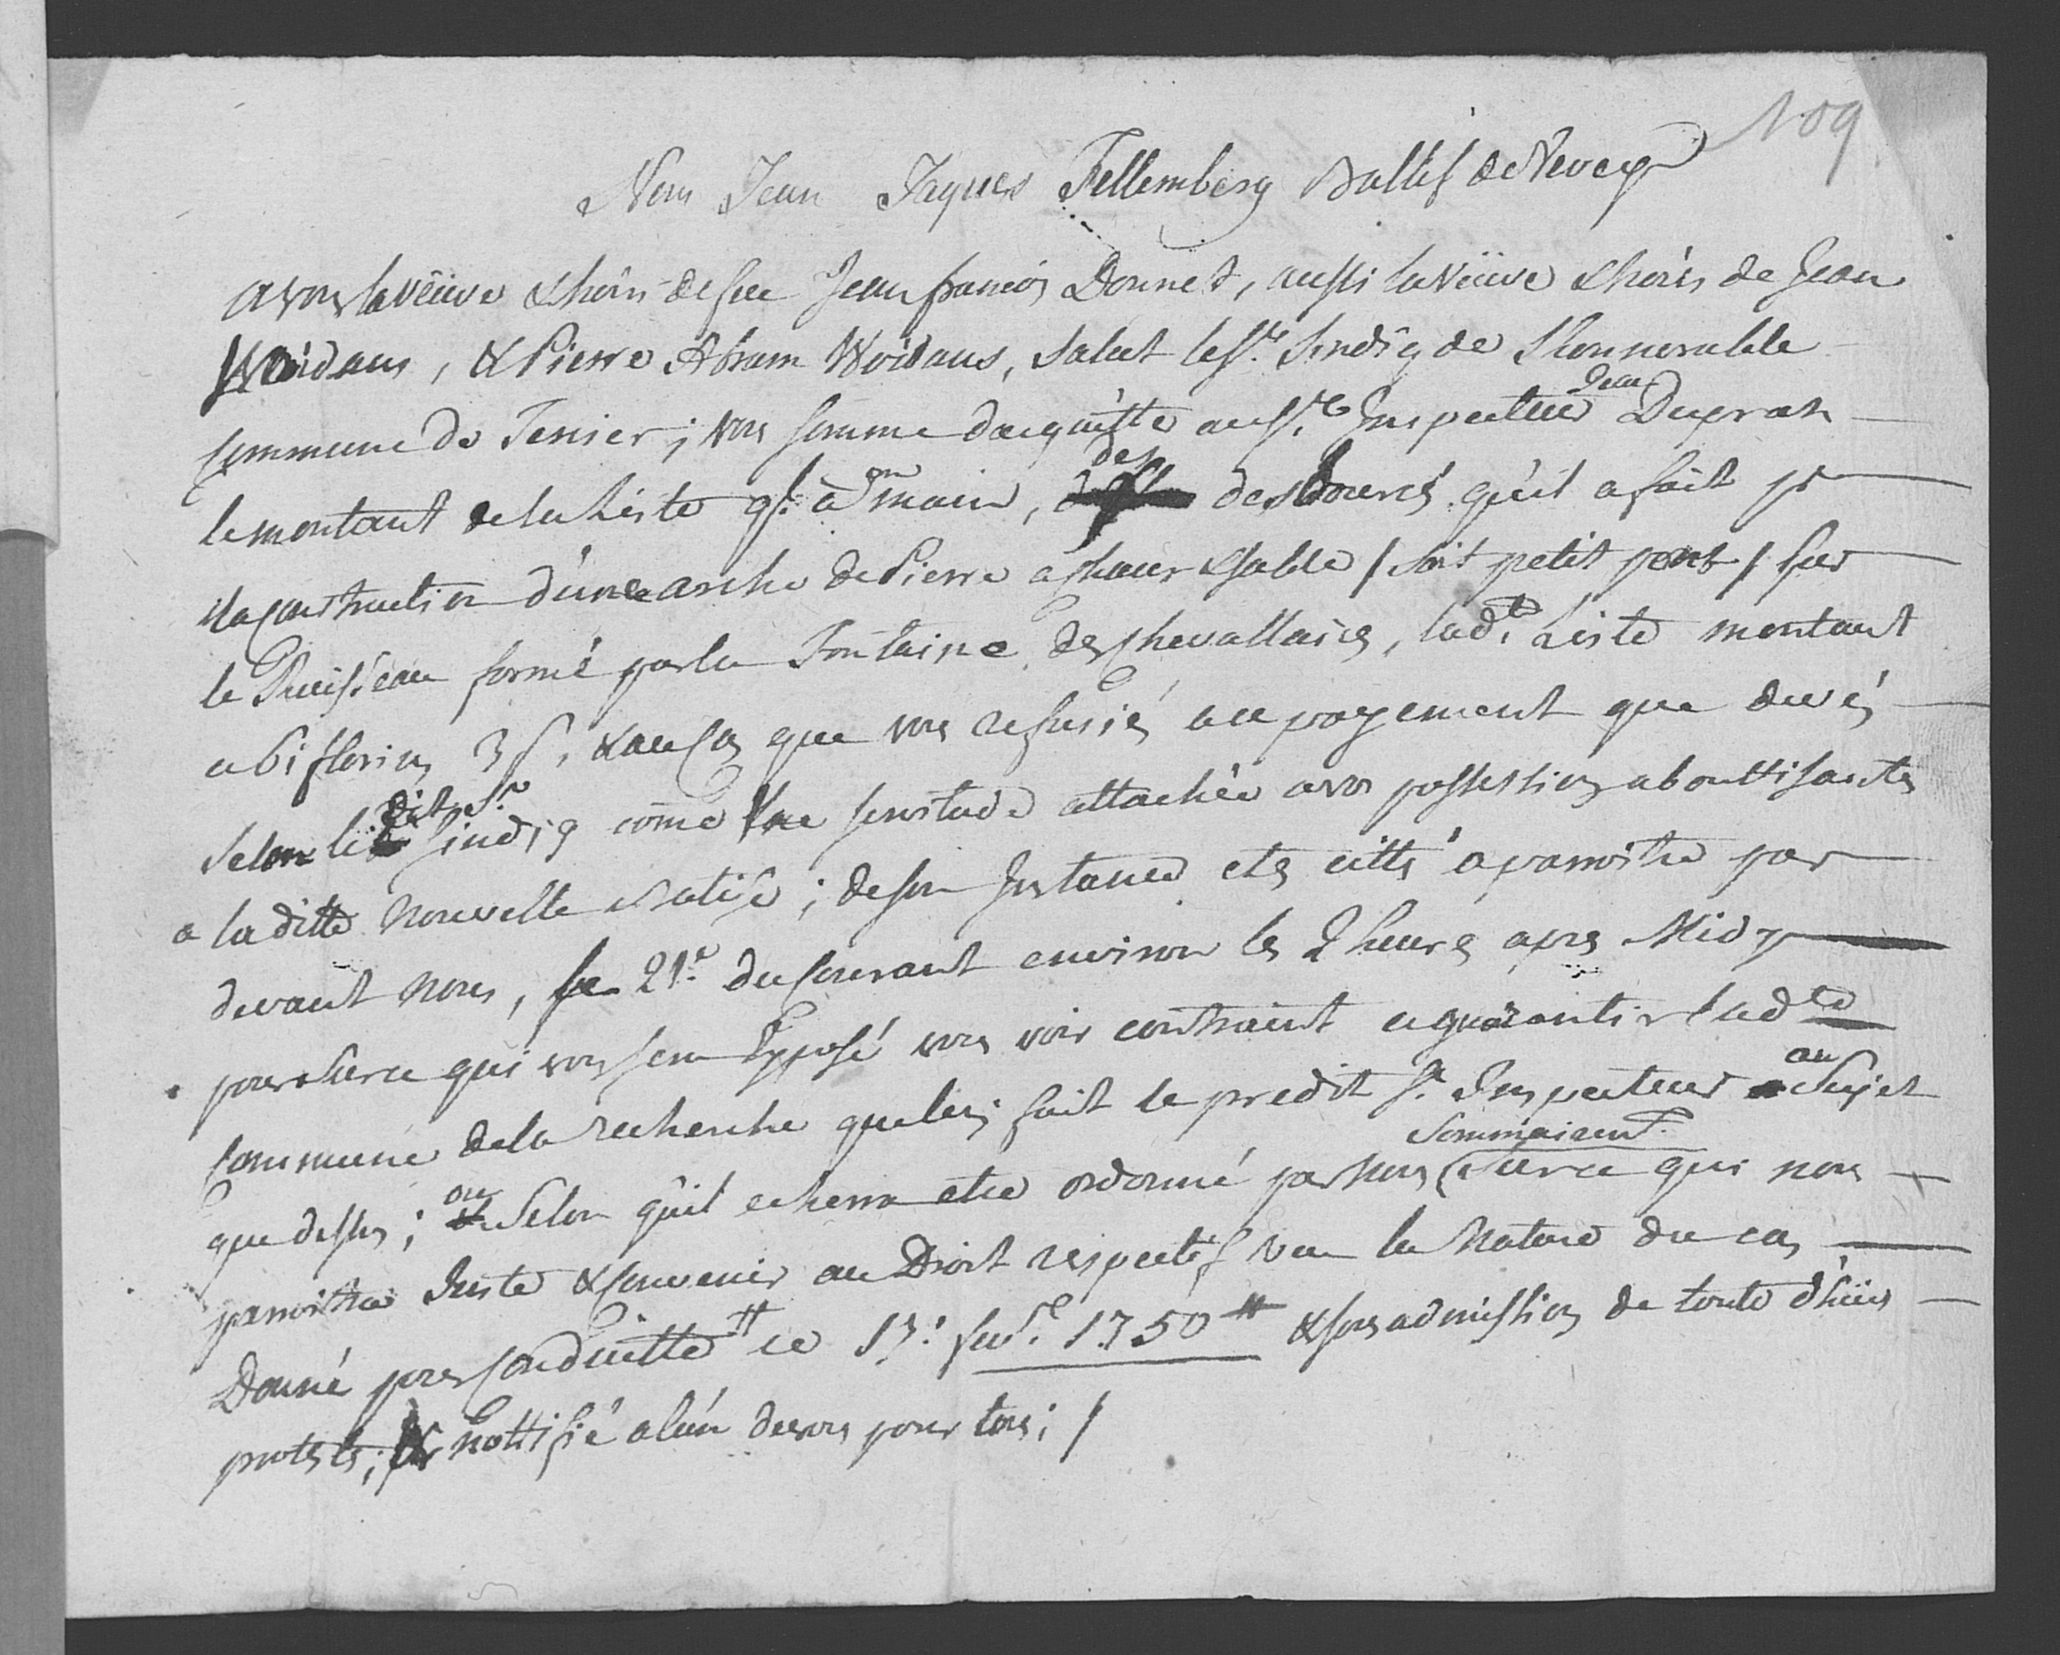 109
Nous Jean Jaques Fellemberg Ballif de Vevey
A vous la vëuve & hoirs de feu Jean françois Donnet, aussi la Vëuve & hoirs de Jean
Woidans, & Pierre Abram Woidans, salut le Sr. Sindiq de L'honnorable
Commune de Tersier; vous somme d'acquitte au Sr. Inspecteur Jean Dupras
le montant de la Liste qu'il a en main, des desbourcés qu'il a fait pr
la construction d'une arche de Pierre a chaux & sable / soit petit pont / sur
le Ruisseau formé par la Fontaine des Chevallaires, lad.te Liste montant
a 61 florins 3 s, & au cas que vous refusiés au payement que devés
selon le dit Sr. Sindiq come Une servitude attachée a vos possessions abouttisantes
a laditte Nouvelle Batise; de son Instance etes citté a paroitre par
devant Nous, le 21e. du Courant environ les 2 heures apres Midy
pour sur ce qui vous sera Exposé vous voir contraint a guarantir lad.te
Commune de la recherche que luy fait le predit Sr. Inspecteur au Sujet
que dessus; ou Selon qu'il echerra etre ordonné par Nous Sommairemt. Sur ce qui nous
paroittra Juste & Convenir au Droit respectif vu la Nature du cas
Donné pour Conduitte # ce 17e. fevr. 1750 # & sous admission de toute d'huës
protests; & nottifié a l'un de vous pour tous; /